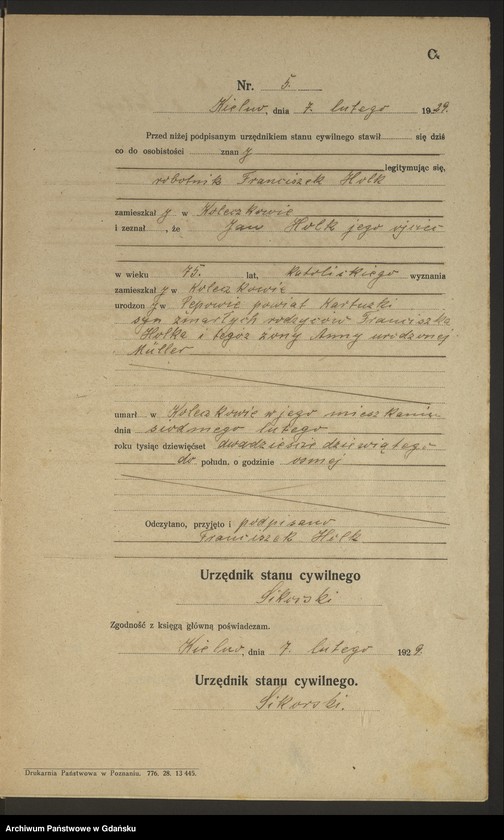 C.
Nr. 5.
Kielno, dnia 7. lutego 1929.
Przed niżej podpisanym urzędnikiem stanu cywilnego stawił się dziś
co do osobistości znany
legitymując się,
robotnik Franciszek Holk
zamieszkały w Koleczkowie
i zeznał, że Jan Holk jego ojciec
w wieku 75. lat, katolickiego wyznania
zamieszkały w Koleczkowie
urodzony w Pępowie powiat Kartuzki
syn zmarłych rodziców Franciszka
Holka i tegoż żony Anny urodzonej
Müller
umarł w Koleczkowie w jego mieszkaniu
dnia siodmego lutego
roku tysiąc dziewięćset dwadzieścia dziewiątego
do połudn. o godzinie osmej
Odczytano, przyjęto i podpisano
Franciszek Holk
Urzędnik stanu cywilnego
Sikorski
Zgodność z księgą główną poświadczam.
Kielno, dnia 7. lutego 1929.
Urzędnik stanu cywilnego.
Sikorski.
Drukarnia Państwowa w Poznaniu. 776. 28. 13 445.
Archiwum Państwowe w Gdańsku